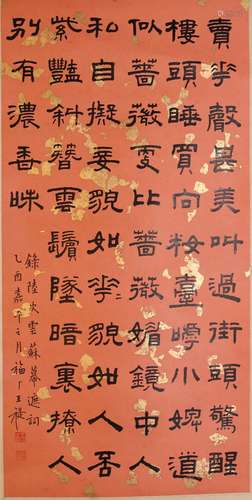 賣華聲甚美叫過街頭驚醒
樓頭睡買向粧臺嚀小婢道
似薔薇更比薔薇媚鏡中人
和自擬妾貌如花〻貌如人否
紫豔斜簪雲鬢墜暗裏撩人
別有濃香味
錄陸次雲蘇幕遮詞
乙酉嘉平之月福厂王禔